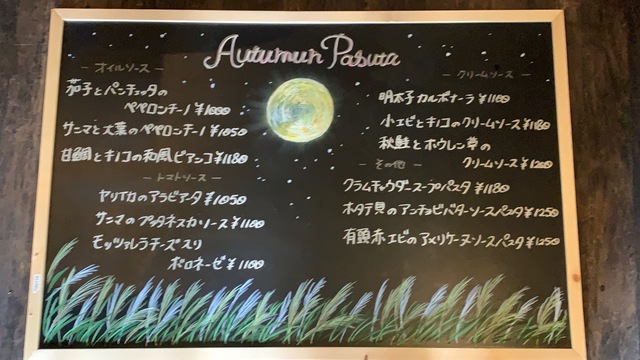 Autumun Pasuta
- オイルソース -
茄子とパンチェッタの
ペペロンチーノ ¥1000
サンマと大葉のペペロンチーノ ¥1050
甘鯛とキノコの和風ビアンコ ¥1180
- トマトソース -
ヤリイカのアラビアータ ¥1050
サンマのプッタネスカソース ¥1100
モッツァレラチーズ入り
ボロネーゼ ¥1100
- クリームソース -
明太子カルボナーラ ¥1100
小エビとキノコのクリームソース ¥1180
秋鮭とホウレン草の
クリームソース ¥1200
- その他 -
クラムチャウダースープパスタ ¥1180
ホタテ貝のアンチョビバターソースパスタ ¥1250
有頭赤エビのアメリケーヌソースパスタ ¥1250